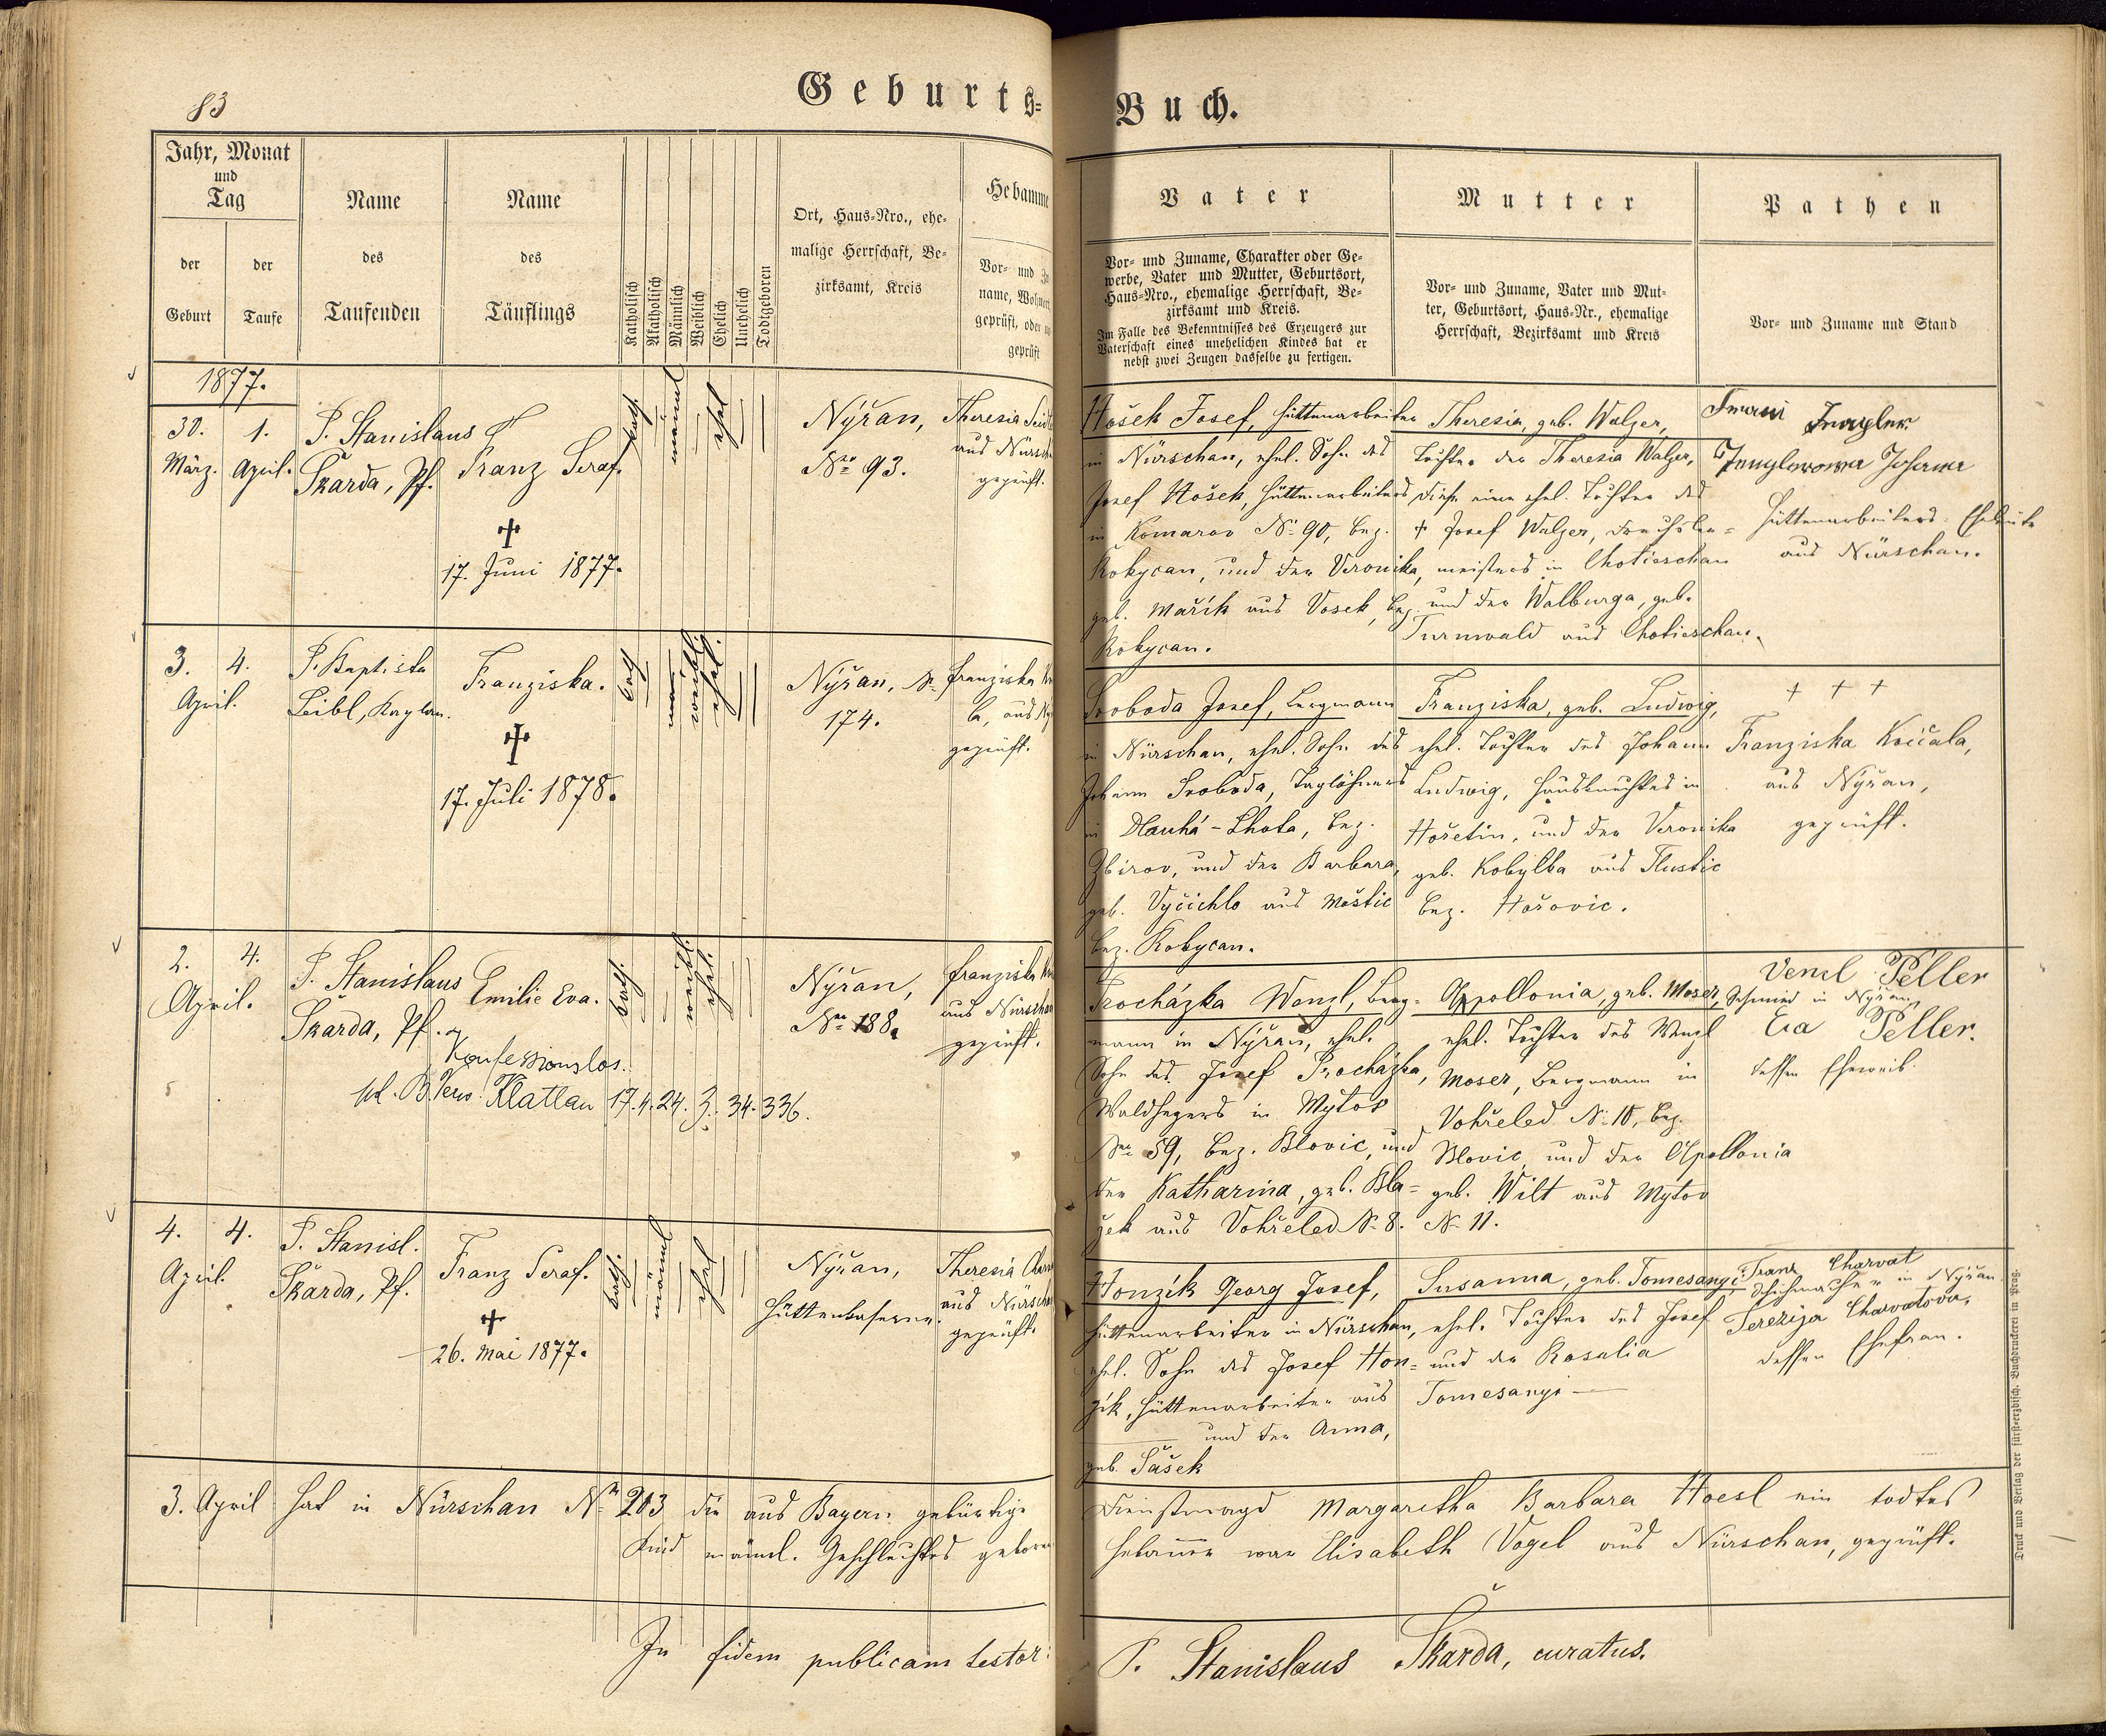 83
Geburts=
Buch.
Jahr, Monat
und
Tag
der
Geburt
der
Taufe
Name
des
Taufenden
Name
des
Täuflings
Katholisch
Akatholisch
Männlich
Weiblich
Ehelich
Unehelich
Todtgeboren
Ort, Haus=Nro., ehe=
malige Herrschaft, Be=
zirksamt, Kreis
Hebamme
Vor= und Zu
name, Wohnort
geprüft, oder un
geprüft
Vater
Vor= und Zuname, Charakter oder Ge=
werbe, Vater und Mutter, Geburtsort,
Haus=Nro., ehemalige Herrschaft, Be=
zirksamt und Kreis.
Im Falle des Bekenntnisses des Erzeugers zur
Vaterschaft eines unehelichen Kindes hat er
nebst zwei Zeugen dasselbe zu fertigen.
Mutter
Vor= und Zuname, Vater und Mut=
ter, Geburtsort, Haus=Nr., ehemalige
Herrschaft, Bezirksamt und Kreis
Pathen
Vor= und Zuname und Stand
1877.
30.
März.
1.
April.
P. Stanislaus
Škarda, Pf.
Franz Seraf.
†
17. Juni 1877.
kath.
männl
ehel
Nýřan,
No 93.
Theresia Seidl
aus Nürsch
geprüft.
Hošek Josef, Hüttenarbeiter
in Nürschan, ehel. Sohn des
Josef Hošek, Hüttenarbeiters
in Komarov No 90, Bez.
Rokycan, und der Veronika,
geb. Mařík aus Vosek, Bez.
Rokycan.
Theresia, geb. Walzer,
Tochter der Theresia Walzer,
diese eine ehel. Tochter des
† Josef Walzer, Drechsler=
meisters in Chotieschan
und der Walburga, geb.
Turnwald aus Chotieschan.
Hüttenarbeiters=Eheleute
aus Nürschan.
3.
April.
4.
P. Baptista
Leibl, Kaplan.
Franziska.
†
17. Juli 1878.
kath
weibl.
ehel.
Nýřan, No
174.
Franziska
aus
geprüft.
Svoboda Josef, Bergmann
in Nürschan, ehel. Sohn des
Johann Svoboda, Taglöhners
in Dlauhá-Lhota, Bez.
Zbirov, und der Barbara,
geb. Vyčichlo aus Moštic
Bez. Rokycan.
Franziska, geb. Ludwig,
ehel. Tochter des Johann
Ludwig, Hausknechtes in
Hořetin, und der Veronika
geb. Kobylka aus Tlustic
Bez. Hořovic.
† † †
Franziska Kočiala,
aus Nýřan,
geprüft.
2.
April.
4.
P. Stanislaus
Škarda, Pf.
Emilie Eva.
Konfessionslos.
Klattau 17.4.24. Z. 34.336.
kath.
weibl.
ehel.
Nýřan,
No 188.
Franziska
aus Nürschan
geprüft.
Procházka Wenzl, Berg=
mann in Nýřan, ehel.
Sohn des Josef Procházka,
Waldhegers in Mytov
No 59, Bez. Blovic, und
der Katharina, geb. Bla=
žek aus Vohřeled No 8.
Appollonia, geb. Moser,
ehel. Tochter des Wenzl
Moser, Bergmann in
Vohřeled No 10, Bez.
Blovic, und der Apollonia
geb. Wilt aus Mytov
No 11.
Vencl Peller
Schmied in Nýřan,
Eva Peller.
dessen Eheweib.
4.
April.
4.
P. Stanisl.
Škarda, Pf.
Franz Seraf.
†
26. Mai 1877.
kath.
männl
ehel
Nýřan,
Hüttenkaserne.
Theresia
aus Nürscha
geprüft.
Honzík Georg Josef,
Hüttenarbeiter in Nürschan,
ehel. Sohn des Josef Hon=
zík, Hüttenarbeiter aus
und der Anna,
geb. Sašek
Susanna, geb. Tomesanyi,
ehel. Tochter des Josef
und der Rosalia
Tomesanyi
Franz Charvat
Schuhmacher in Nýřan.
Terezija Charvatova,
dessen Ehefrau.
3. April hat in Nürschan No 203 die aus Bayern gebürtige
Dienstmagd Margaretha Barbara Hoesl ein todtes
Kind männl. Geschlechtes geboren
Hebamme war Elisabeth Vogel aus Nürschan, geprüft.
In fidem publicam testor:
P. Stanislaus Škarda, curatus.
Druck und Verlag der fürst=erzbisch. Buchdruckerei in Prag.